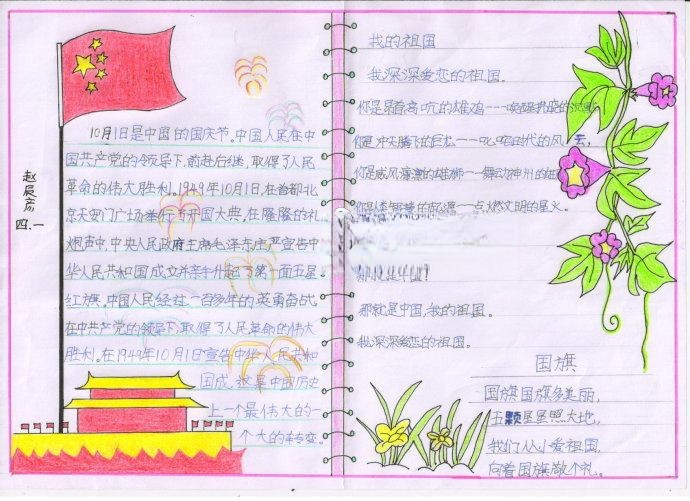 赵辰彦
四.一
10月1日是中国的国庆节。中国人民在中
国共产党的领导下,前赴后继,取得了人民
革命的伟大胜利。1949年10月1日,在首都北
京天安门广场举行了开国大典,在隆隆的礼
炮声中,中央人民政府主席毛泽东庄严宣告中
华人民共和国成立并亲手升起了第一面五星
红旗。中国人民经过一百多年的英勇奋战,
在中共产党的领导下,取得了人民革命的伟大
胜利。在1949年10月1日宣告中华人民共和
国成。这是中国历史
上一个最伟大的一
个大的转变。
我的祖国
我深深爱恋的祖国。
你是昂首高吭的雄鸡---唤醒拂晓的沉默,
你是冲天腾飞的巨龙---叱咤时代的风云,
你是威风凛凛的雄狮---舞动神州的雄
你是 智慧的 源---点燃文明的星火。
那就是中国,我的祖国
我深深爱恋的祖国。
国旗
国旗国旗多美丽,
五颗星星照大地,
我们从小爱祖国,
向着国旗敬个礼。